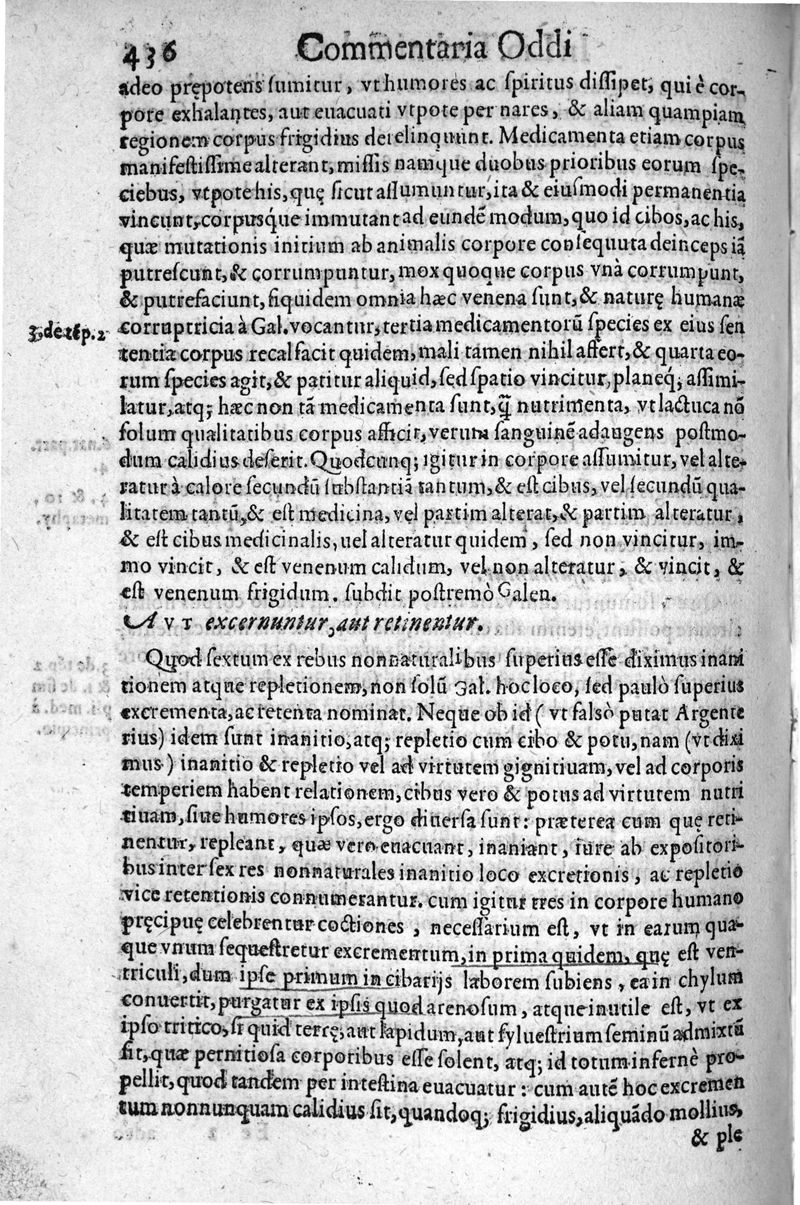 436 Commentaria Oddi
adeo prępotens sumitur, vt humores ac spiritus dissipet, qui è cor-
pore exhalantes, aut euacuati vtpote per nares, & aliam quampiam
regionem corpus frigidius derelinquunt. Medicamenta etiam corpus
manifestissime alterant, missis namque duobus prioribus eorum spe-
ciebus, vtpote his, quę sicut assumuntur, ita & eiusmodi permanentia
vincunt, corpusq́ue immutant ad eundẽ modum, quo id cibos, ac his,
quæ mutationis initium ab animalis corpore consequuta deinceps iã
putrescunt, & corrumpuntur, mox quoque corpus vnà corrumpunt,
& putrefaciunt, siquidem omnia hæc venena sunt, & naturę humanæ
3. de tẽp. 2
corruptricia à Gal. vocantur, tertia medicamentorũ species ex eius sen
tentia corpus recalfacit quidem, mali tamen nihil affert, & quarta eo-
rum species agit, & patitur aliquid, sed spatio vincitur, planeq́; assimi-
latur, atq; hæc non tã medicamenta sunt, q̃ nutrimenta, vt lactuca nõ
solum qualitatibus corpus afficit, verum sanguinẽ adaugens postmo-
dum calidius deserit. Quodcunq; igitur in corpore assumitur, vel alte-
ratur à calore secundũ substantiã tantum, & est cibus, vel secundũ qua-
litatem tantũ, & est medicina, vel partim alterat, & partim alteratur,
& est cibus medicinalis, uel alteratur quidem, sed non vincitur, im-
mo vincit, & est venenum calidum, vel non alteratur, & vincit, &
est venenum frigidum. subdit postremò Galen.
AVT excernuntur, aut retinentur.
Quod sextum ex rebus nonnaturalibus superius esse diximus inani
tionem atque repletionem, non solũ Gal. hoc loco, sed paulò superius
excrementa, ac retenta nominat. Neque ob id ( vt falsò putat Argente
rius) idem sunt inanitio, atq; repletio cum cibo & potu, nam (vt dixi
mus ) inanitio & repletio vel ad virtutem gignitiuam, vel ad corporis
temperiem habent relationem, cibus vero & potus ad virtutem nutri
tiuam, siue humores ipsos, ergo diuersa sunt: præterea cum quę reti-
nentur, repleant, quæ vero euacuant, inaniant, iure ab expositori-
bus inter sex res nonnaturales inanitio loco excretionis, ac repletio
vice retentionis connumerantur. cum igitur tres in corpore humano
pręcipuę celebrentur coctiones, necessarium est, vt in earum qua-
que vnum sequestretur excrementum, in prima quidem, quę est ven-
triculi, dum ipse primum in cibarijs laborem subiens, ea in chylum
conuertit, purgatur ex ipsis quod arenosum, atque inutile est, vt ex
ipso tritico, si quid terrę, aut lapidum, aut syluestrium seminũ admixtũ
sit, quæ pernitiosa corporibus esse solent, atq; id totum infernè pro-
pellit, quod tandem per intestina euacuatur: cum autẽ hoc excremen
tum nonnunquam calidius sit, quandoq; frigidius, aliquãdo mollius,
& ple